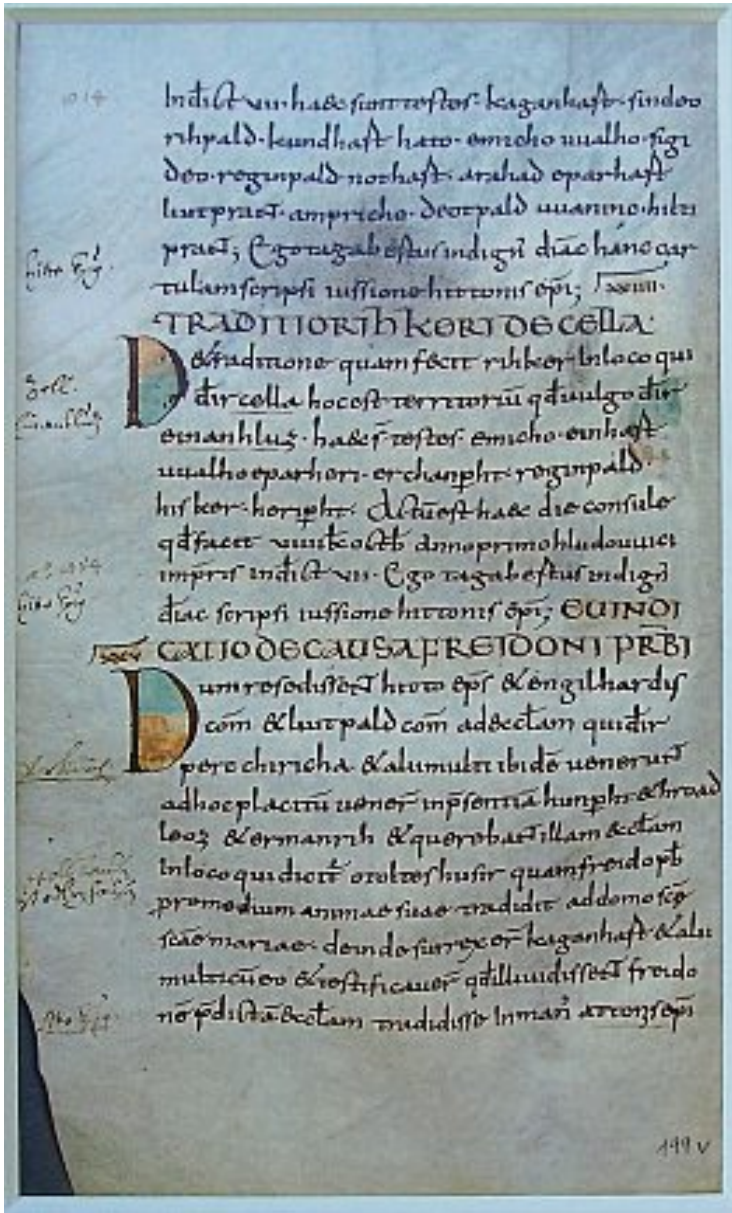 Indict vii. haec sunt testes. kaganhast. sindeo
rihpald. kundhast hato. emicho uualho. sigi
deo. reginpald. nothast. arahad eparhast
liutpraet. ampricho. deotpald uuanino. hilti
praet; Ego tagabertus indign diac hanc car
tulam scripsi iussione hittonis epi; xxxiiii.
TRADITIO RIHKERI DE CELLA.
De traditione quam fecit rihker In loco qui
dir cella hoc est territoriu qd uulgo dir
emanhluz. haec s testes. emicho. einhast
uualho eparheri. erchanpht. reginpald.
hisker. heripht. Actu est haec die consule
qd facit viiii kt octb anno primo hludouuici
impris indict vii. Ego tagabertus indign
diac scripsi iussione hittonis epi; EUINDI
xxxv CATIO DE CAUSA FREIDONI PRBI
Dum resedisset hitto eps & engilhardus
com & liutpald com ad ecclam qui dir
percchiricha & alii multi ibide uenerunt
ad hoc placitu uener in psentia hunpht & hroad
leoz & ermanrih & querebant illam ecclam
In loco qui dicit otolteshusir quam freido pb
pro remedium animae suae tradidit ad domo sce
scae mariae. deinde surrexer kaganhast & alii
multi cu eo & testificauer qd illi uidissent freido
ne pdicta ecclam tradidisse In man attonis epi
199 v